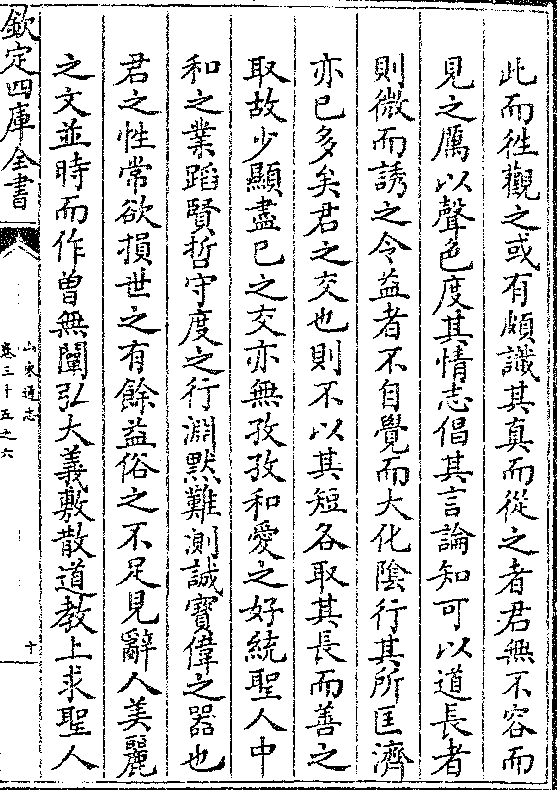 此而徃觀之或有頗識其真而從之者君無不容而
見之厲以聲色度其情志倡其言論知可以道長者
則微而誘之令益者不自覺而大化陰行其所匡濟
亦已多矣君之交也則不以其短各取其長而善之
取故少顯盡已之交亦無孜孜和愛之好統聖人中
和之業蹈賢哲守度之行淵默難測誠寳偉之器也
君之性常欲損世之有餘益俗之不足見辭人美麗
之文並時而作曽無闡弘大義敷散道教上求聖人
欽定四庫全書
山東通志
卷三十五之六
十